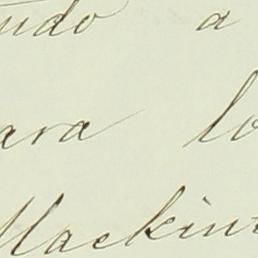 udo a
ara lo
Mackin